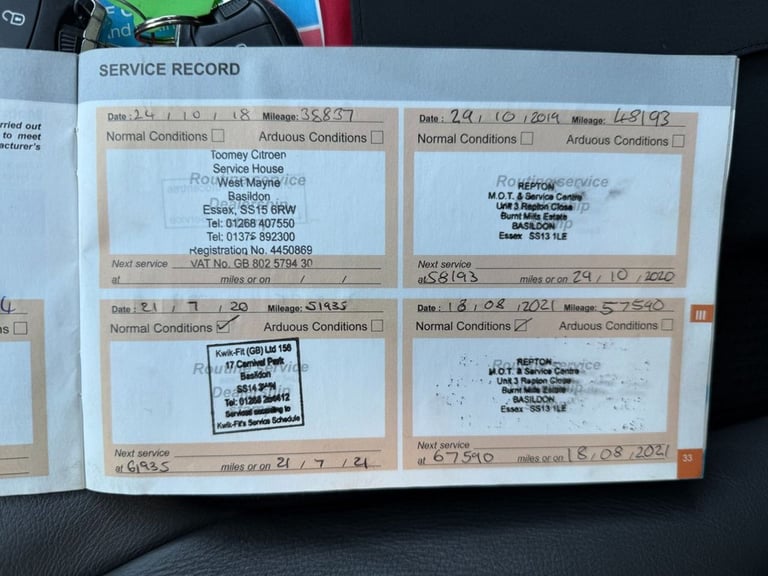 SERVICE RECORD
rried out
to meet
acturer's
Date: 24 / 10 / 18 Mileage: 38837
Normal Conditions Arduous Conditions
Routing service
Toomey Citroen
Service House
West Mayne
Basildon
Essex, SS15 6RW
Tel: 01268 407550
Tel: 01375 892300
Registration No. 4450869
VAT No. GB 802 5794 30
Next service
at miles or on / /
Date: 29, 10, 2019 Mileage: 48193
Normal Conditions Arduous Conditions
Routing service
REPTON
M.O.T. & Service Centre
Unit 3 Repton Close
Burnt Mills Estate
BASILDON
Essex SS13 1LE
Next service
at 58193 miles or on 29, 10, 2020
Date: 21 / 7 / 20 Mileage: 51935
Normal Conditions Arduous Conditions
Kwik-Fit (GB) Ltd 156
17 Carnival Park
Basildon
Tel: 01268
Serviced according to
Kwik-Fit's Service Schedule
Next service
at 61935 miles or on 21 / 7 / 21
Date: 18, 08, 2021 Mileage: 57590
Normal Conditions Arduous Conditions
Routing service
REPTON
M.O.T. & Service Centre
Unit 3 Repton Close
Burnt Mills Estate
BASILDON
Essex SS13 1LE
Next service
at 67590 miles or on 18, 08, 2021
III
33